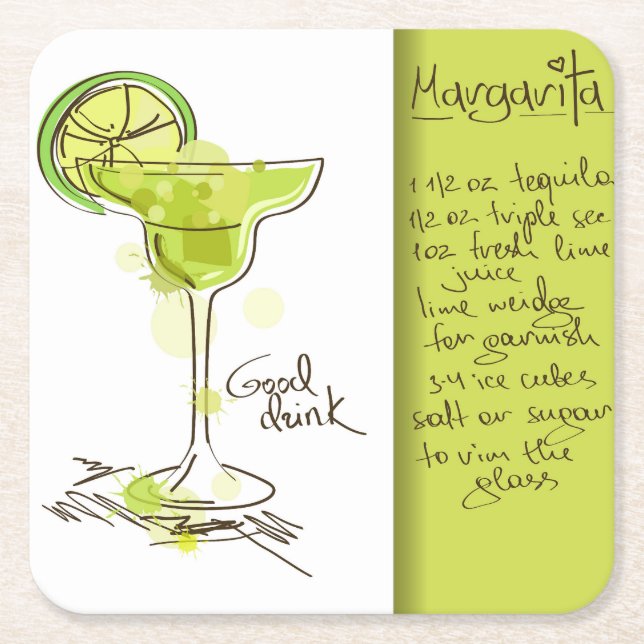 Margarita
1 1/2 oz tequila
1/2 oz triple sec
1oz fresh lime
juice
lime weidge
for garnish
3-4 ice cubes
salt or sugar
to rim the
glass
Good
drink